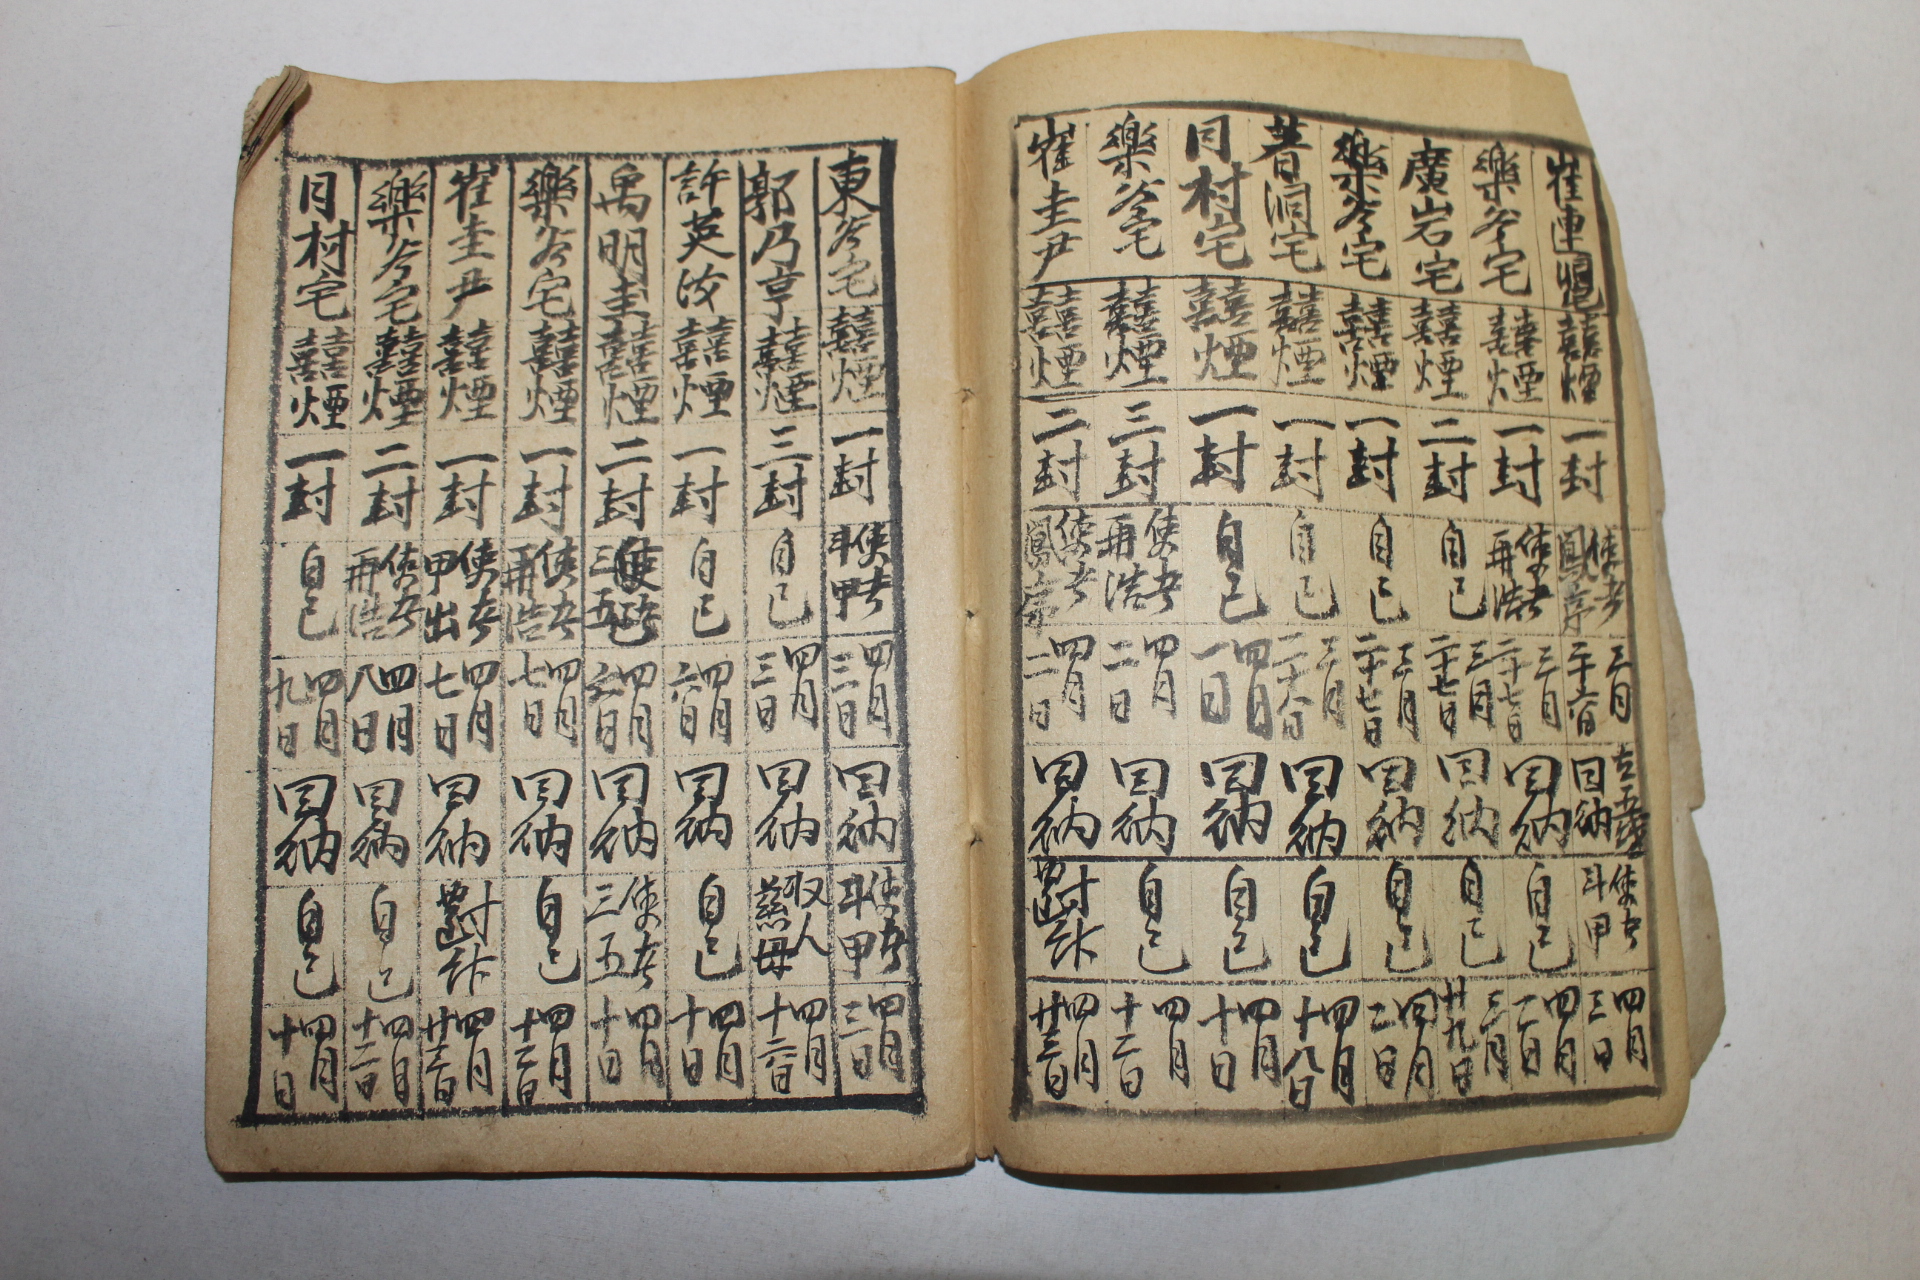 崔蓮洞宅 囍煙 一封 使者鳳亭 三月二十六日 回納 使者斗甲 四月三日
樂谷宅 囍煙 一封 使者再浩 三月二十七日 回納 自己 四月一日
廣岩宅 囍煙 二封 自己 三月二十七日 回納 自己 三月廿九日
樂谷宅 囍煙 一封 自己 三月二十七日 回納 自己 四月二日
著洞宅 囍煙 一封 自己 三月二十八日 回納 自己 四月十八日
月村宅 囍煙 一封 自己 四月一日 回納 自己 四月十日
樂谷宅 囍煙 三封 使者再浩 四月二日 回納 自己 四月十二日
崔圭尹 囍煙 二封 使者鳳亭 四月二日 回納 四月廿三日
東谷宅 囍煙 一封 使者斗甲 四月三日 回納 使者斗甲 四月三日
郭乃亨 囍煙 三封 自己 四月三日 回納 收人慈母 四月十六日
許英汶 囍煙 一封 自己 四月六日 回納 自己 四月十日
禹明圭 囍煙 二封 使者三五 四月六日 回納 使者三五 四月十日
樂谷宅 囍煙 一封 使者再浩 四月七日 回納 自己 四月十二日
崔圭尹 囍煙 一封 使者甲出 四月七日 回納 四月廿三日
樂谷宅 囍煙 二封 使者再浩 四月八日 回納 自己 四月十二日
月村宅 囍煙 一封 自己 四月九日 回納 自己 四月十日